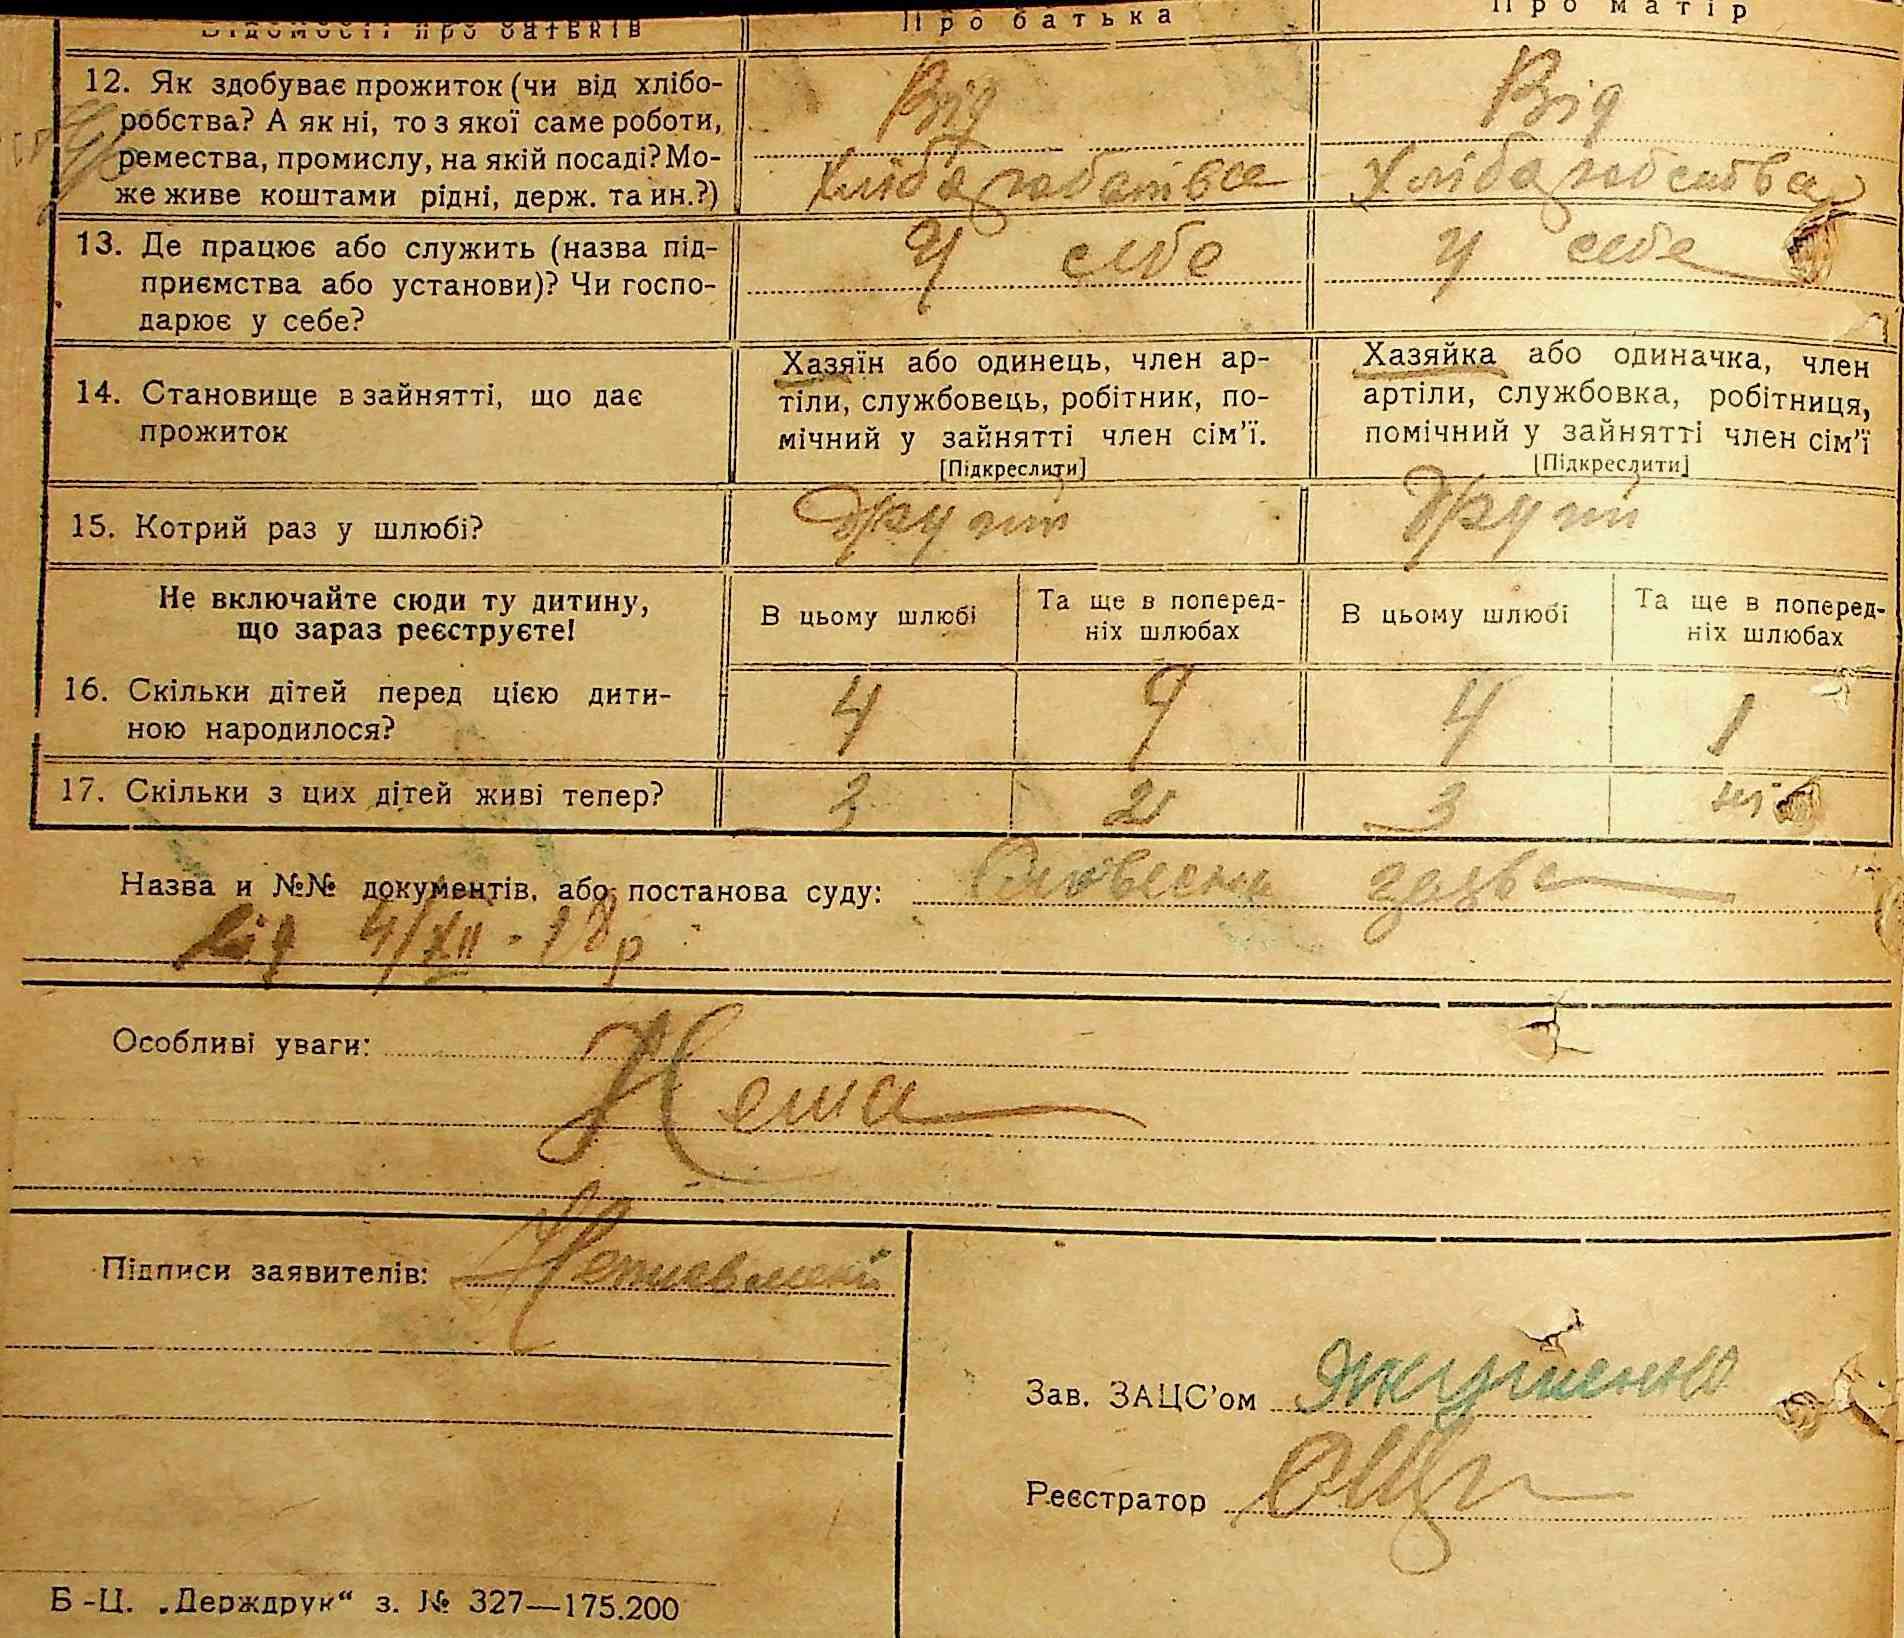 Відомості про батьків
Про батька
Про матір
12. Як здобуває прожиток (чи від хлібо-
робства? А як ні, то з якої саме роботи,
ремества, промислу, на якій посаді? Мо-
же живе коштами рідні, держ. та ин.?)
Від
Хлібаробства
Від
Хлібаробства
13. Де працює або служить (назва під-
приємства або установи)? Чи госпо-
дарює у себе?
У себе
У себе
14. Становище в зайнятті, що дає
прожиток
Хазяїн або одинець, член ар-
тіли, службовець, робітник, по-
мічний у зайнятті член сім’ї.
[Підкреслити]
Хазяйка або одиначка, член
артіли, службовка, робітниця,
помічний у зайнятті член сім’ї
[Підкреслити]
15. Котрий раз у шлюбі?
другий
другий
Не включайте сюди ту дитину,
що зараз реєструєте!
В цьому шлюбі
Та ще в поперед-
ніх шлюбах
В цьому шлюбі
Та ще в поперед-
ніх шлюбах
16. Скільки дітей перед цією дити-
ною народилося?
4 4 1
17. Скільки з цих дітей живі тепер?
3 2 3
Назва и №№ документів, або постанова суду: Словесна заява
від 4/XII - 18р
Особливі уваги:
Нема
Підписи заявителів:
Зав. ЗАЦС’ом
Реєстратор
Б-Ц. „Держдрук“ з. № 327—175.200